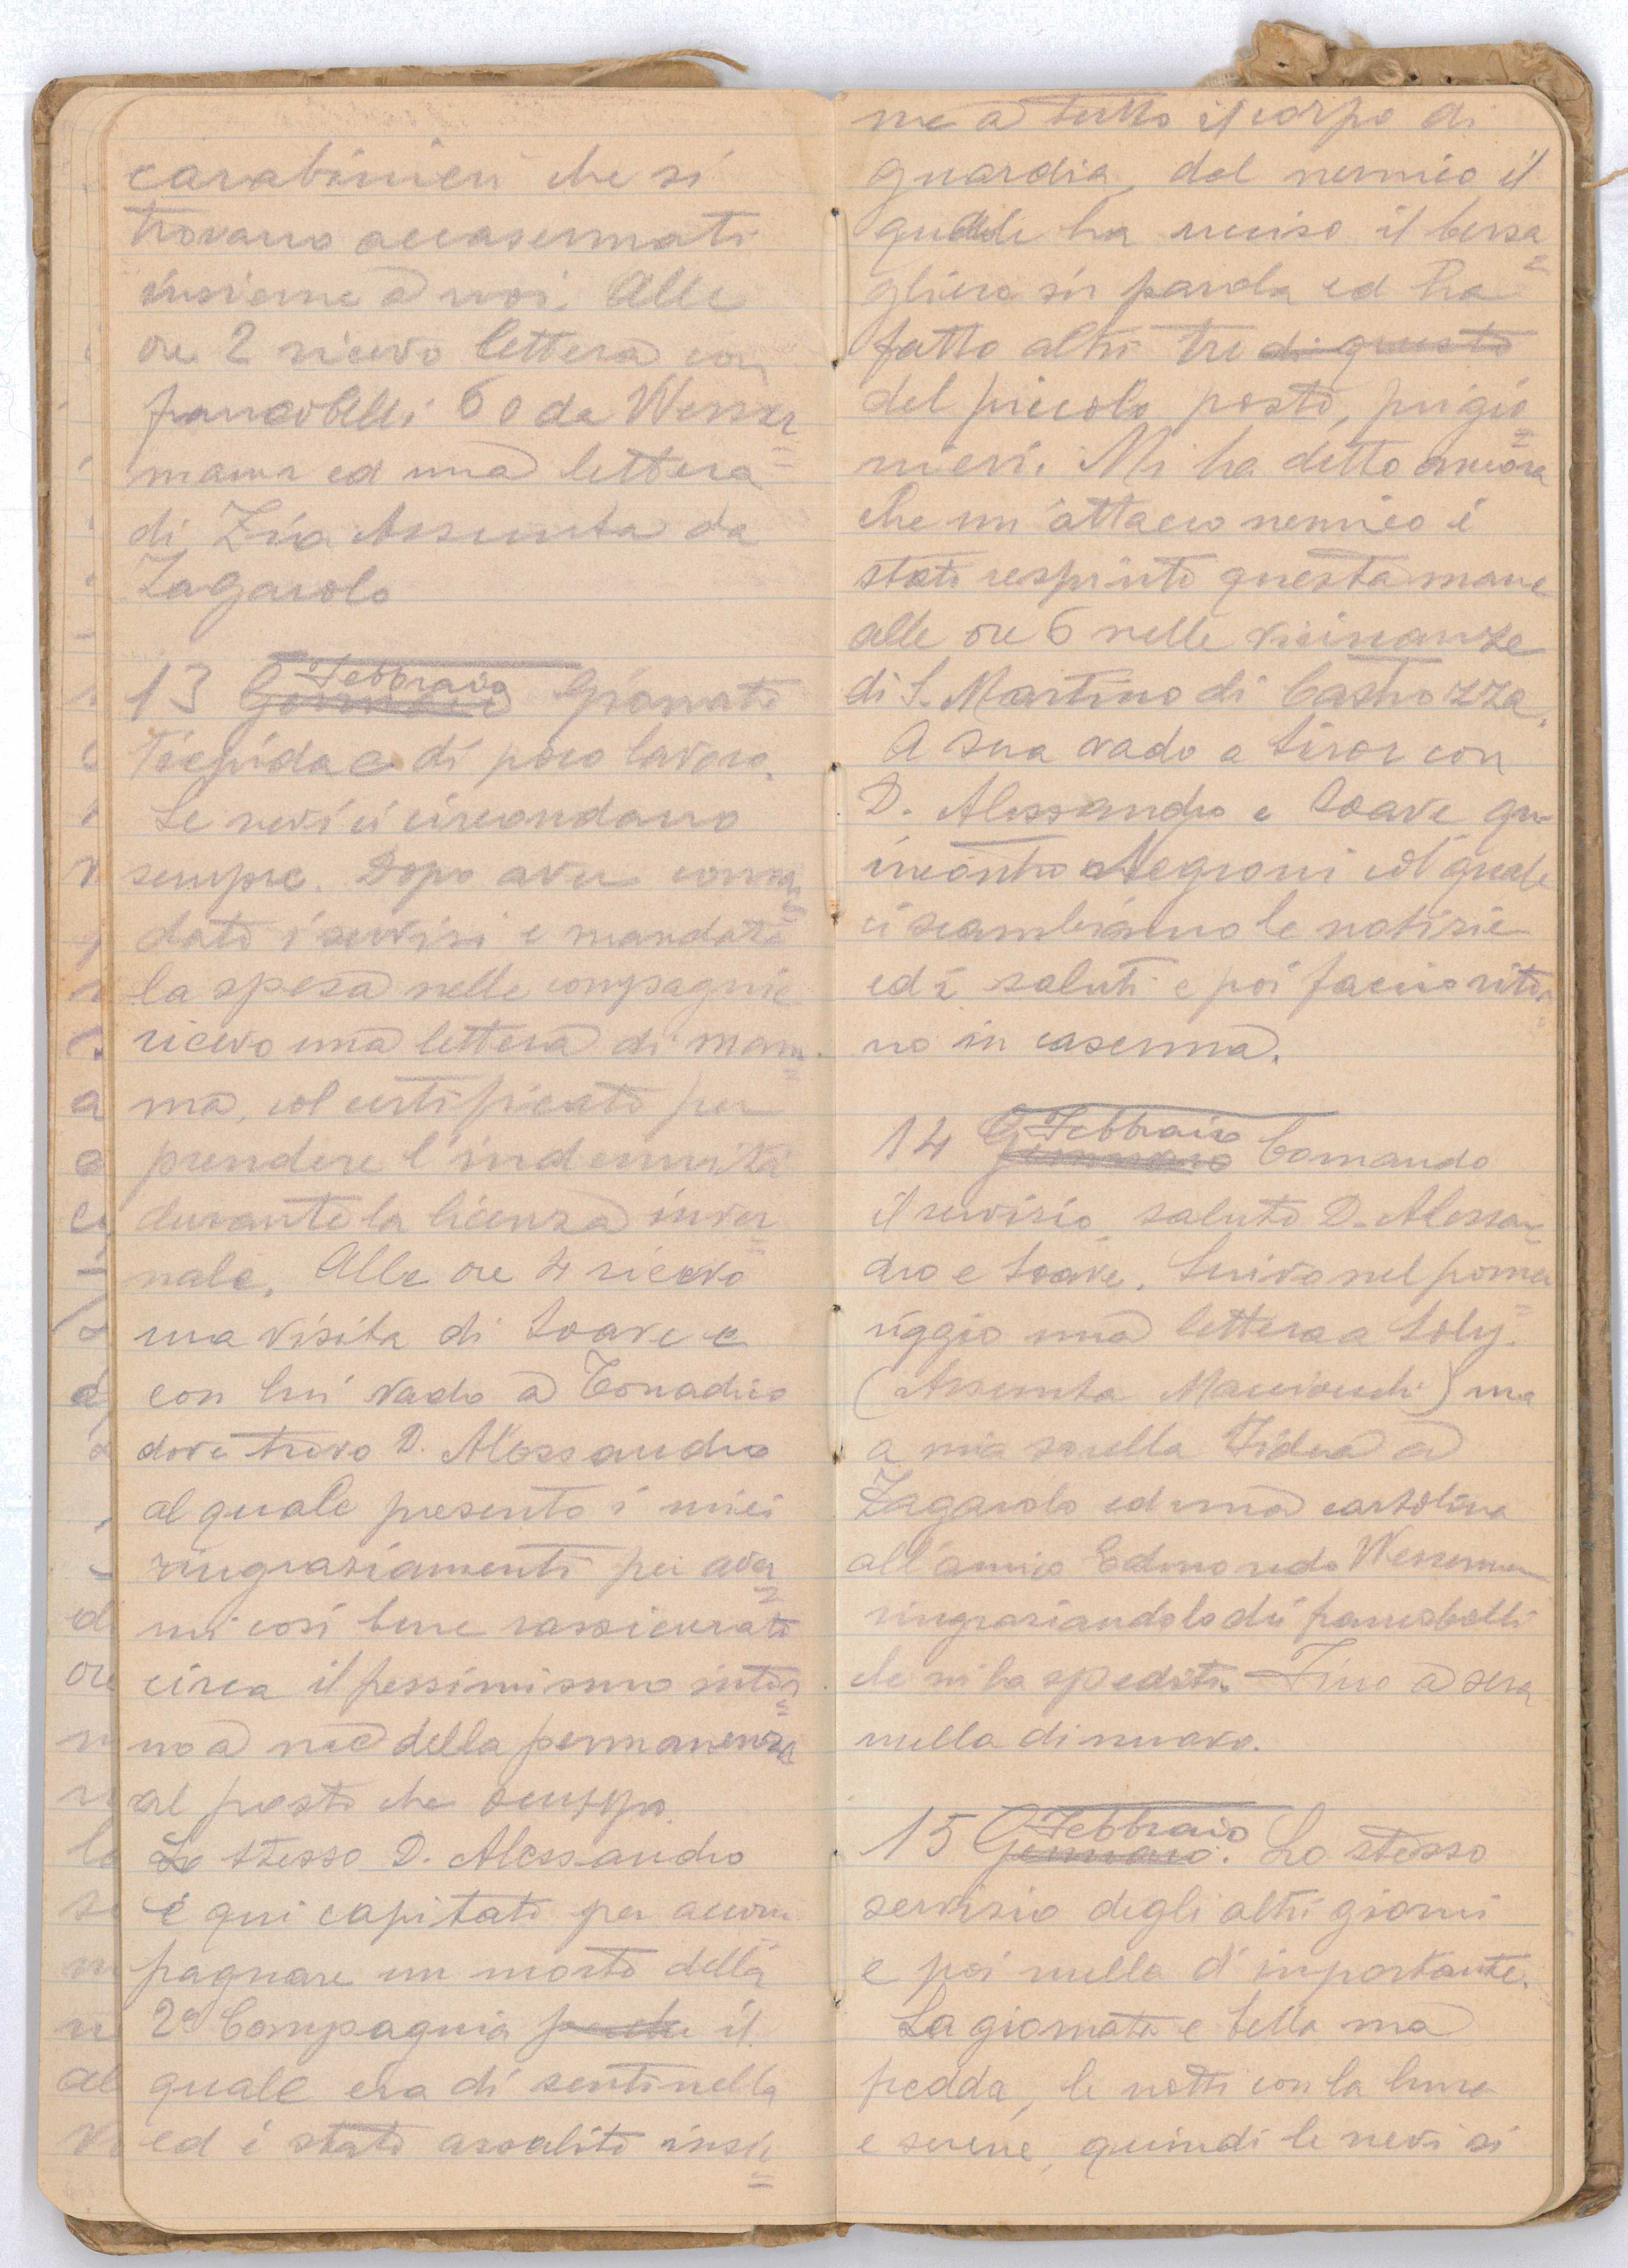 carabinieri che si
trovano accasermati
insieme a noi. Alle
ore 2 ricevo lettera con
francobolli 60 da Wesser=
mann ed una lettera
di Zia Assunta da
Zagarolo
13 Febbraio Giornata
Tiepida e di poco lavoro.
Le nevi ci circondano
sempre. Dopo aver coman=
dato i servizi e mandato
la spesa nelle compagnie
ricevo una lettera di mam=
ma, col certificato per
prendere l'indennità
durante la licenza inver=
nale. Alle ore 4 ricevo
una visita di Soave e
con lui vado a Tonadico
dove trovo D. Alessandro
al quale presento i miei
ringraziamenti per aver=
mi così bene rassicurato
circa il pessimismo intor=
no a me della permanenza
al posto che occupo.
Lo stesso D. Alessandro
è qui capitato per accom
pagnare un morto della
2a Compagnia il
quale era di sentinella
ed è stato assalito insie=
me a tutto il corpo di
guardia, dal nemico il
quale ha ucciso il bersa=
gliere in parola ed ha
fatto altri tre di questo
del piccolo posto, prigio=
nieri. Mi ha detto ancora
che un attacco nemico è
stato respinto questa mane
alle ore 6 nelle vicinanze
di S. Martino di Castrozza.
A sera vado a Siror con
D. Alessandro e Soave qui
incontro Negroni col quale
ci scambiamo le notizie
ed i saluti e poi faccio ritor=
no in caserma.
14 Febbraio Comando
il servizio, saluto D. Alessan=
dro e Soave. Scrivo nel pome=
riggio una lettera a Soly.
(Assunta) una
a mia sorella a
Zagarolo ed una cartolina
all'amico Edmondo Wesserman
ringraziandolo dei francobolli
che mi ha spediti. Fino a sera
nulla di nuovo.
15 Febbraio. Lo stesso
servizio degli altri giorni
e poi nulla d'importante.
La giornata è bella ma
fredda, le notti con la luna
e serene, quindi le nevi si